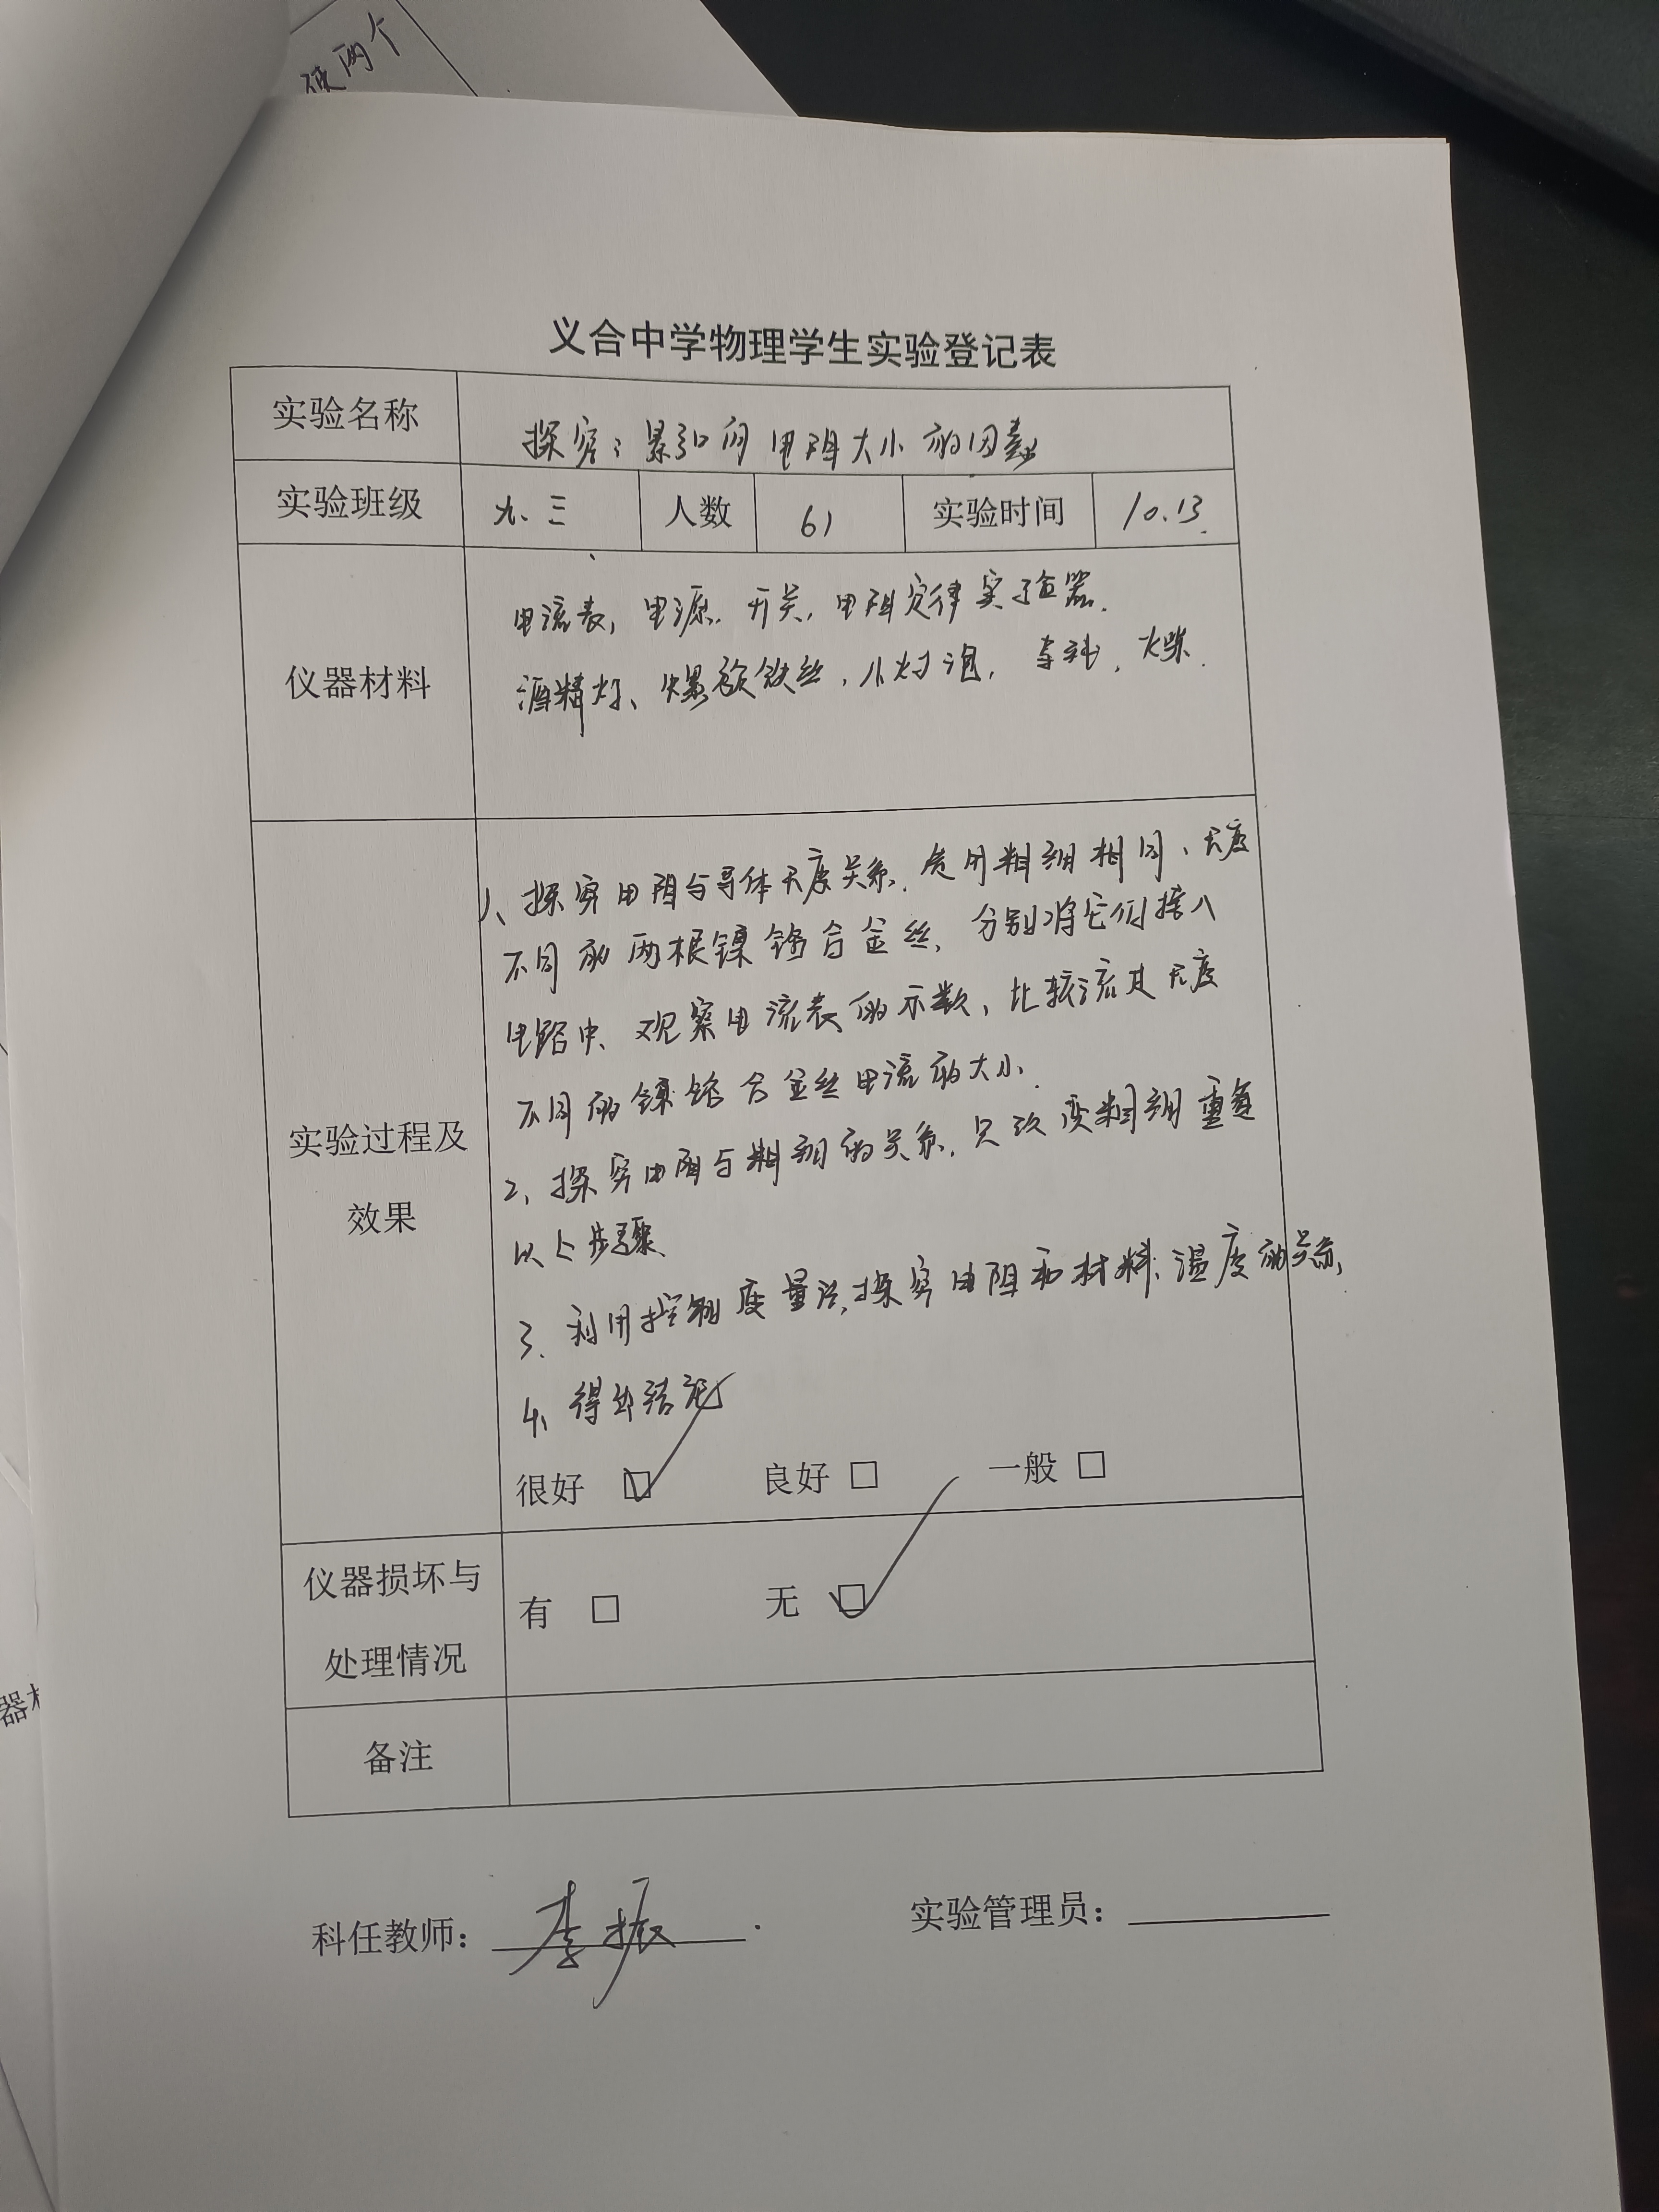 两个
义合中学物理学生实验登记表
实验名称 探究:影响 电阻大小的因素
实验班级 九.三 人数 61 实验时间 10.13.
仪器材料
电流表,电源.开关,电阻定律实验器.
酒精灯、 铁丝,小灯泡, 导线,火柴.
实验过程及
效果
1、探究电阻与导体长度关系.选用粗细相同、长度
不同的两根镍铬合金丝,分别将它们接入
电路中、观察电流表的示数,比较流过长度
不同的镍铬合金丝电流的大小.
2、探究电阻与粗细的关系,只改变粗细重复
以上步骤
3. 利用控制变量法,探究电阻和材料、温度的关系,
4、得出结论
很好 □ 良好 □ 一般 □
仪器损坏与
处理情况
有 □ 无 □
备注
科任教师: 李振 实验管理员:
器材